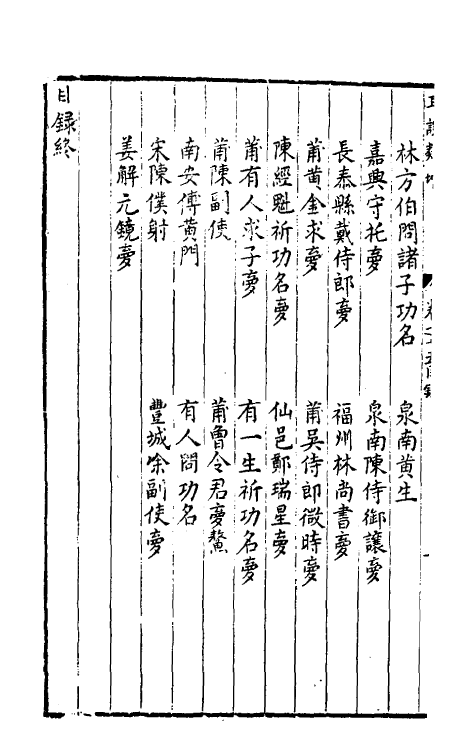 林方伯問諸子功名
泉南黄生
嘉興守祀夣
泉南陳侍御讓夣
長泰縣戴侍郎夣
福州林尚書夣
莆黄金求夣
莆吴侍郎微時夣
陳經魁祈功名夣
仙邑鄭瑞星夣
莆有人求子夣
有一生祈功名夣
莆陳副使
莆曾令君夣鰲
南安傅黄門
有人問功名
宋陳僕射
豐城余副使夣
姜解元鏡夣
目録終